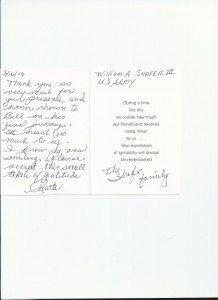 Thank you so
very much for
your presence and
honor shown to
Bill on his
final journey.
It meant so
much to us -
I know he was
smiling. Please
accept this small
token of gratitude
William A Shafer III
US ARMY
During a time
like this
we realize how much
our friends and relatives
really mean
to us . . . .
Your expression
of sympathy will always
be remembered
The
Shafer
family